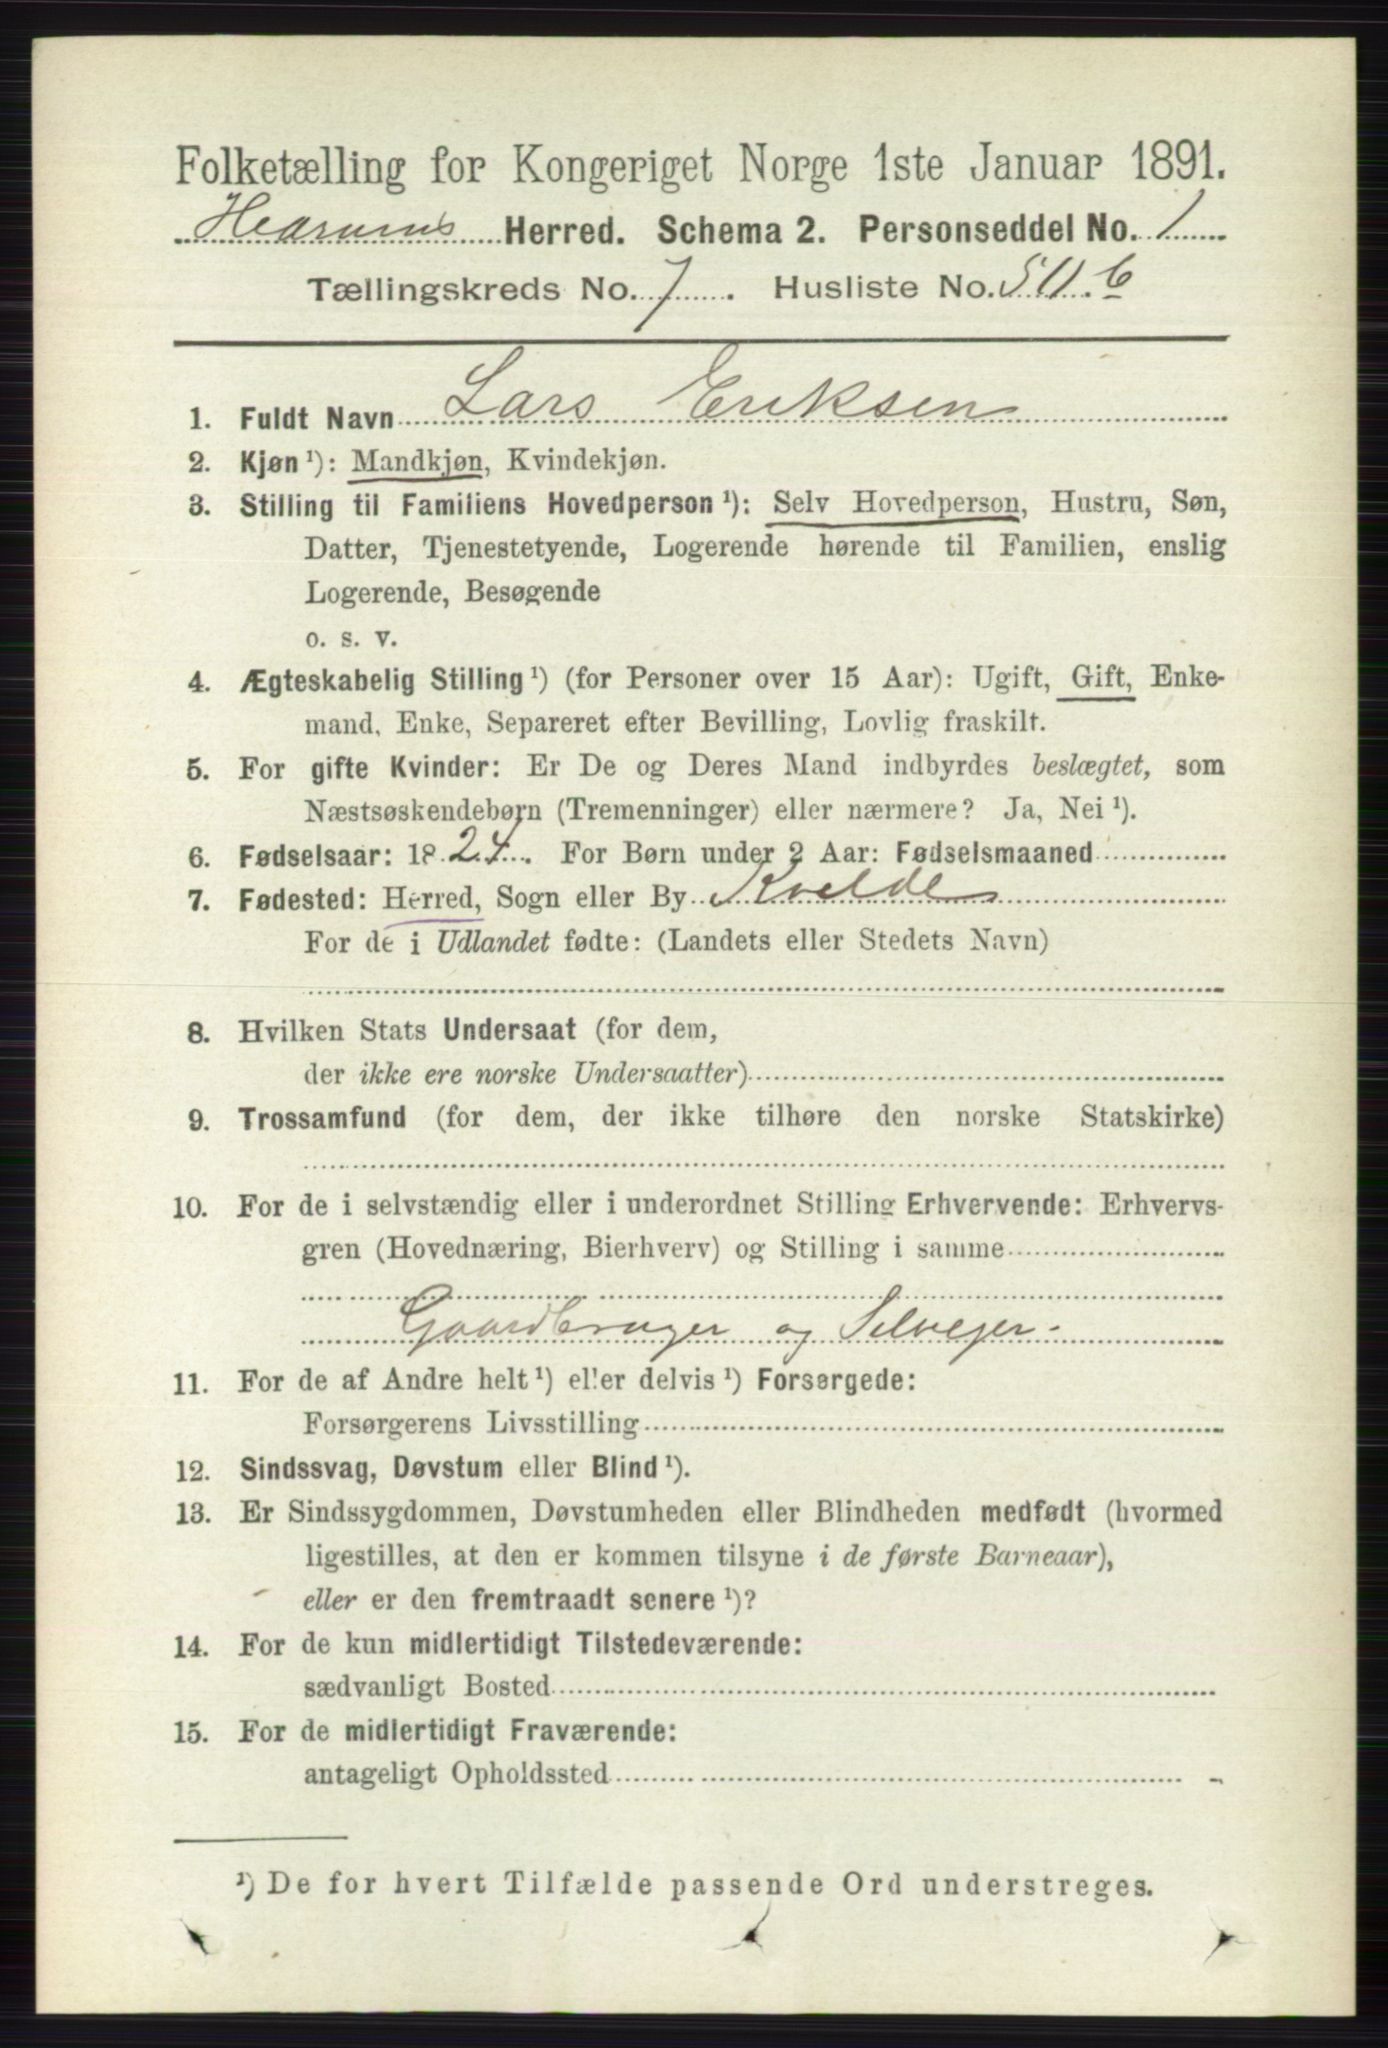 Folketælling for Kongeriget Norge 1ste Januar 1891.
Hedrums Herred. Schema 2. Personseddel No. 1
Tællingskreds No. 7. Husliste No.
1. Fuldt Navn Lars Eriksen
2. Kjøn ¹): Mandkjøn, Kvindekjøn.
3. Stilling til Familiens Hovedperson ¹): Selv Hovedperson, Hustru, Søn,
Datter, Tjenestetyende, Logerende hørende til Familien, enslig
Logerende, Besøgende
o. s. v.
4. Ægteskabelig Stilling ¹) (for Personer over 15 Aar): Ugift, Gift, Enke-
mand, Enke, Separeret efter Bevilling, Lovlig fraskilt.
5. For gifte Kvinder: Er De og Deres Mand indbyrdes beslægtet, som
Næstsøskendebørn (Tremenninger) eller nærmere? Ja, Nei ¹).
6. Fødselsaar: 1824. For Børn under 2 Aar: Fødselsmaaned
7. Fødested: Herred, Sogn eller By Kvelde
For de i Udlandet fødte: (Landets eller Stedets Navn)
8. Hvilken Stats Undersaat (for dem,
der ikke ere norske Undersaatter)
9. Trossamfund (for dem, der ikke tilhøre den norske Statskirke)
10. For de i selvstændig eller i underordnet Stilling Erhvervende: Erhvervs-
gren (Hovednæring, Bierhverv) og Stilling i samme
Gaardbruger og Selvejer.
11. For de af Andre helt ¹) eller delvis ¹) Forsørgede:
Forsørgerens Livsstilling
12. Sindssvag, Døvstum eller Blind ¹).
13. Er Sindssygdommen, Døvstumheden eller Blindheden medfødt (hvormed
ligestilles, at den er kommen tilsyne i de første Barneaar),
eller er den fremtraadt senere ¹)?
14. For de kun midlertidigt Tilstedeværende:
sædvanligt Bosted
15. For de midlertidigt Fraværende:
antageligt Opholdssted
¹) De for hvert Tilfælde passende Ord understreges.